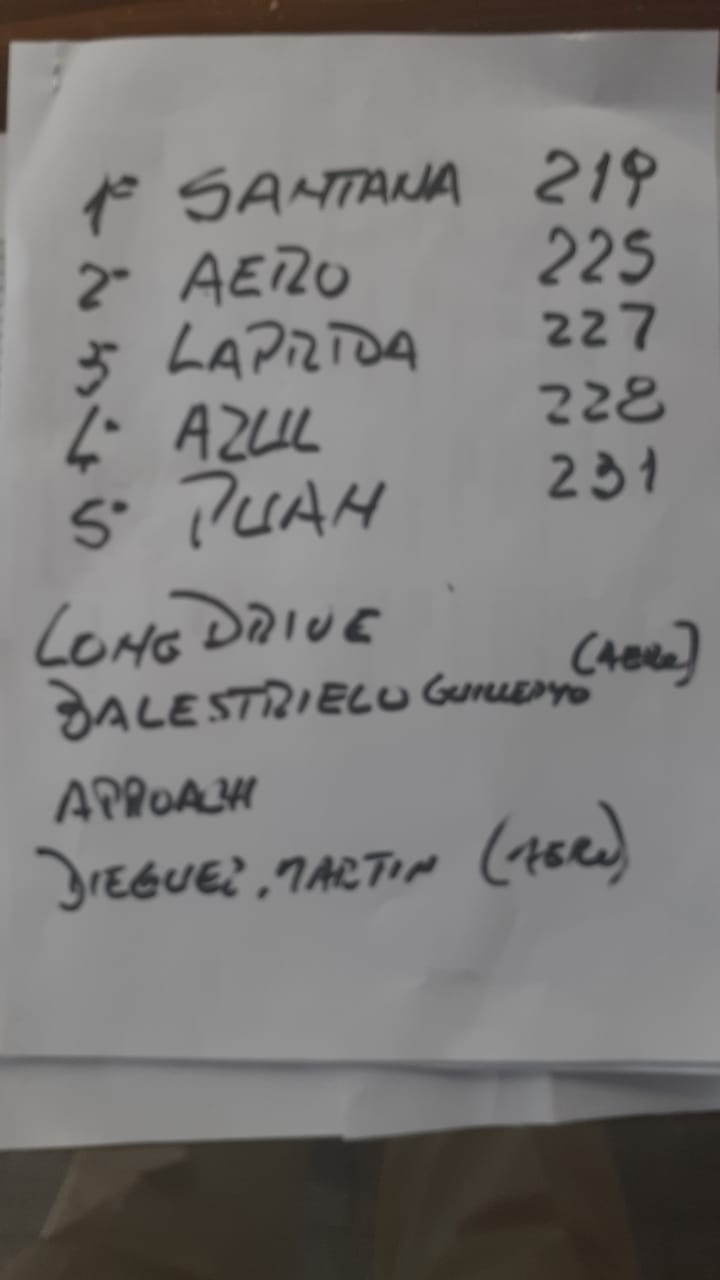 1º SANTANA 219
2º AERO 225
3º LAPRIDA 227
4º AZUL 228
5º PUAN 231
LONG DRIVE
BALESTRIELO GUILLERMO (AERO)
APROACH
DIEGUEZ, MARTIN (AERO)